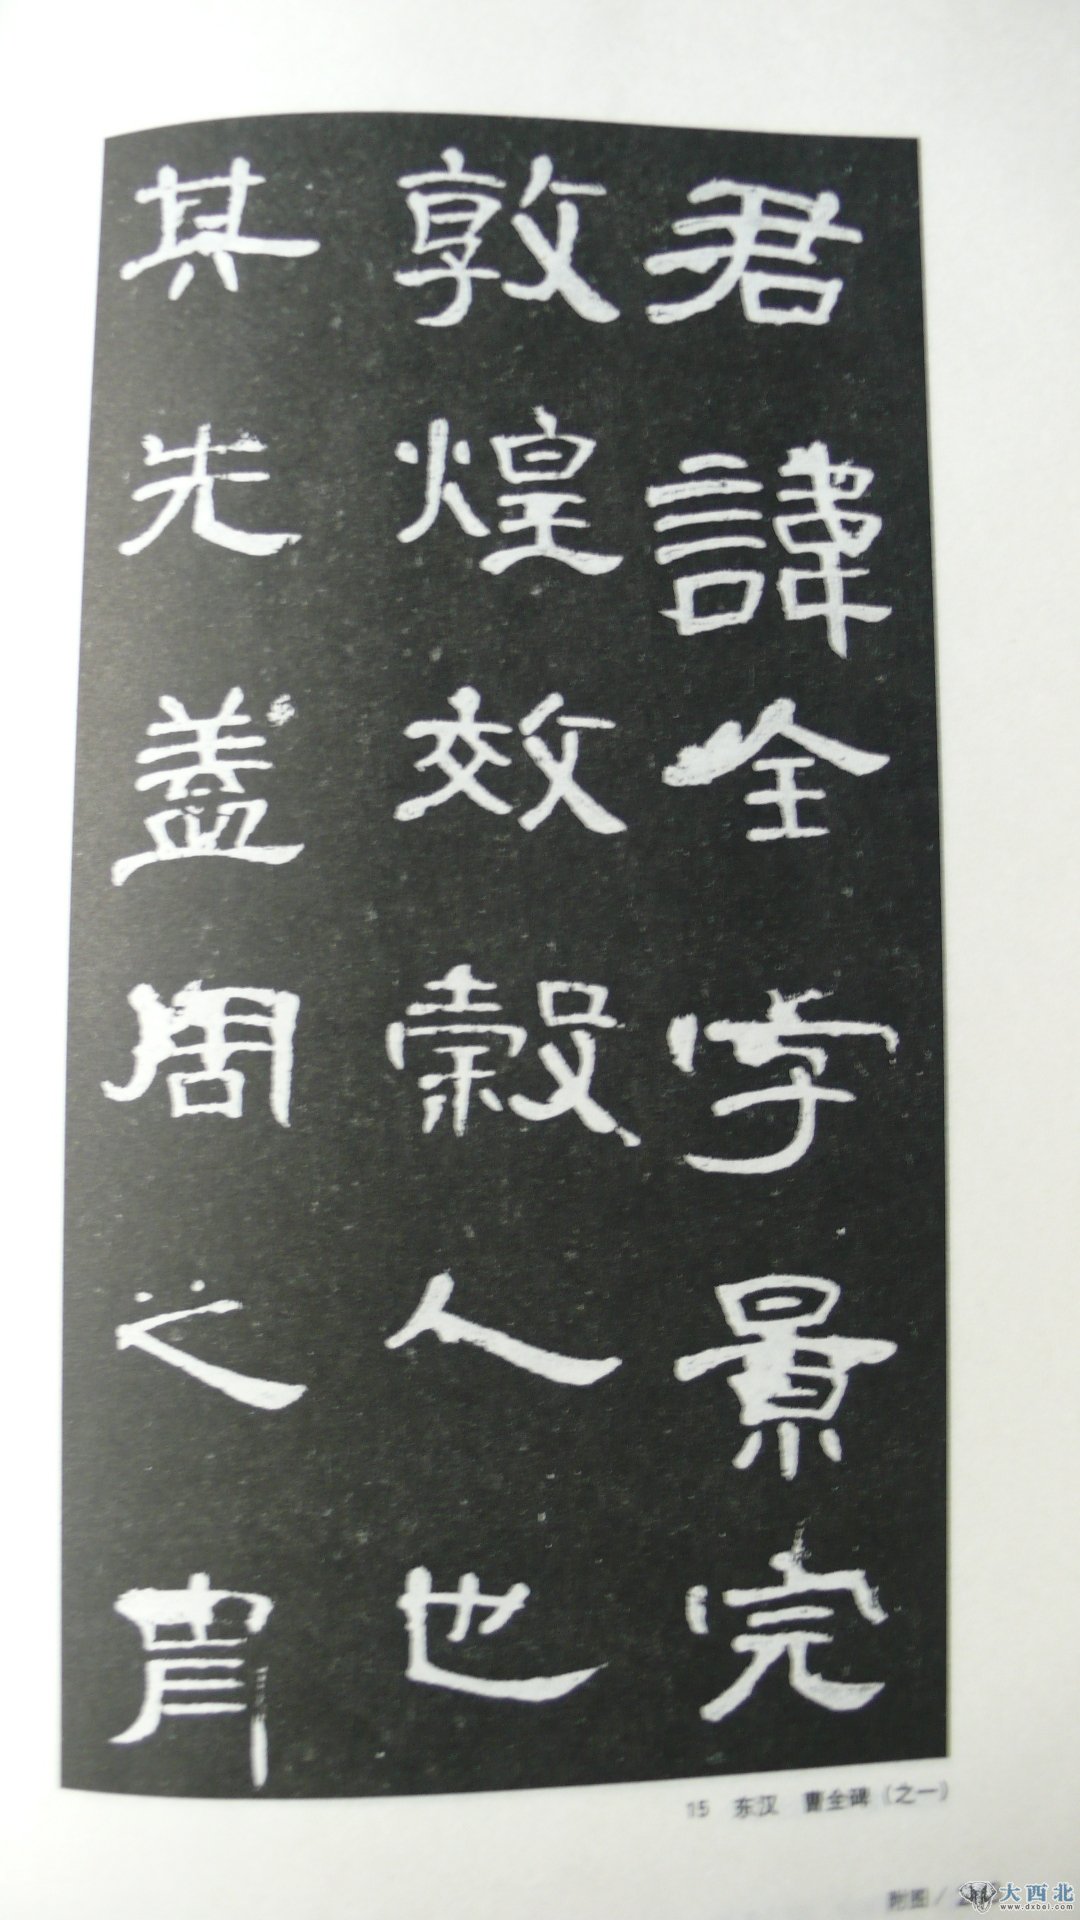 君諱全字景完
敦煌效穀人也
其先盖周之胄
15 东汉 曹全碑（之一）
附图/
大西北
www.dxbei.com